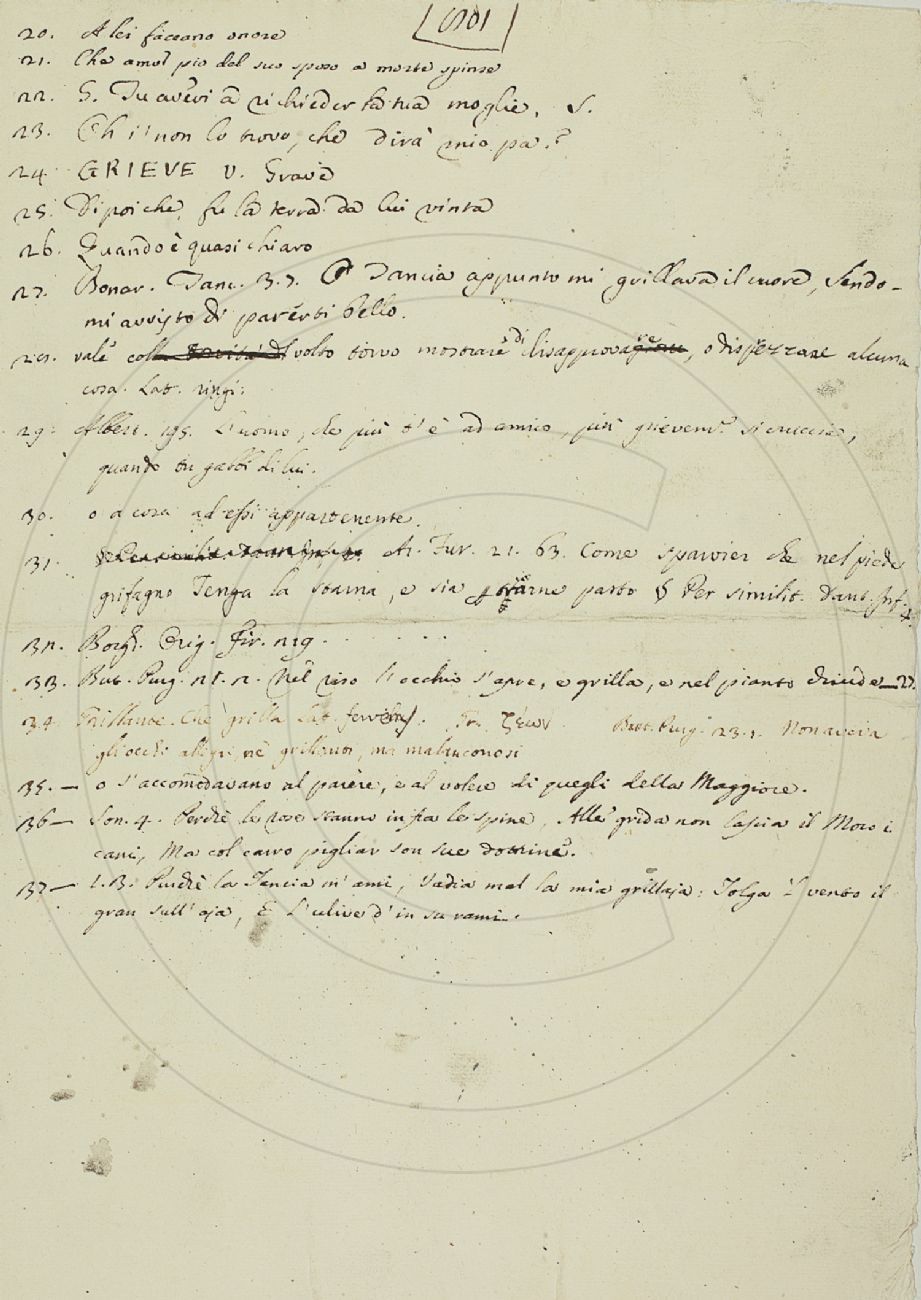 20. A lei faceano onore
21. Che amor pio del suo sposo a morte spinse
22. S. Tu averai a richieder la tua moglie, S.
23. Eh s'i' non lo trovo, che dirà mio pa.?
24. GRIEVE V. Grave
25. Dipoiche fu la terra da lui vinta
26. Quando è quasi chiaro
27. Bonar. Tanc. 3. 7. O Tancia appunto mi grillava il cuore, Sendo-
mi avvisto di parerti bello.
vale col volto torvo mostrare di disapprovare, o disprezzare alcuna
cosa. Lat. ringi:
29. Albert. 195. L'uomo, che più t'è ad amico, più grievem. si cruccia,
quando tu gabbi di lui.
30. o a cosa ad essi appartenente.
31. Ar. Fur. 21. 63. Come sparvier che nel piede
grifagno Tenga la starna, e sia per farne pasto § Per similit. Dant. Inf. 4.
32. Borgh. Orig. Fir. 219. . . . . . .
33. But. Purg. 21. 2. Nel riso l'occhio s'apre, e grilla, e nel pianto chiude— 27.
34. Grillante. Che grilla Lat. fervens. Gr. ζέων But. Purg. 23. 1. Non avea
gli occhi allegri, nè grillanti, ma malinconosi
35. — o s'accomodavano al parere, e al volere di quegli della Maggiore.
36— Son. 4. Perchè le rose stanno infra le spine, Alle grida non lascia il Moro i
cani, Ma col carro pigliar son sue dottrine.
37— 1. 3. Purchè la Tancia m'ami, Vadia mal la mia grillaja: Tolga 'l vento il
gran sull'aja, E l'ulive d'in su rami.